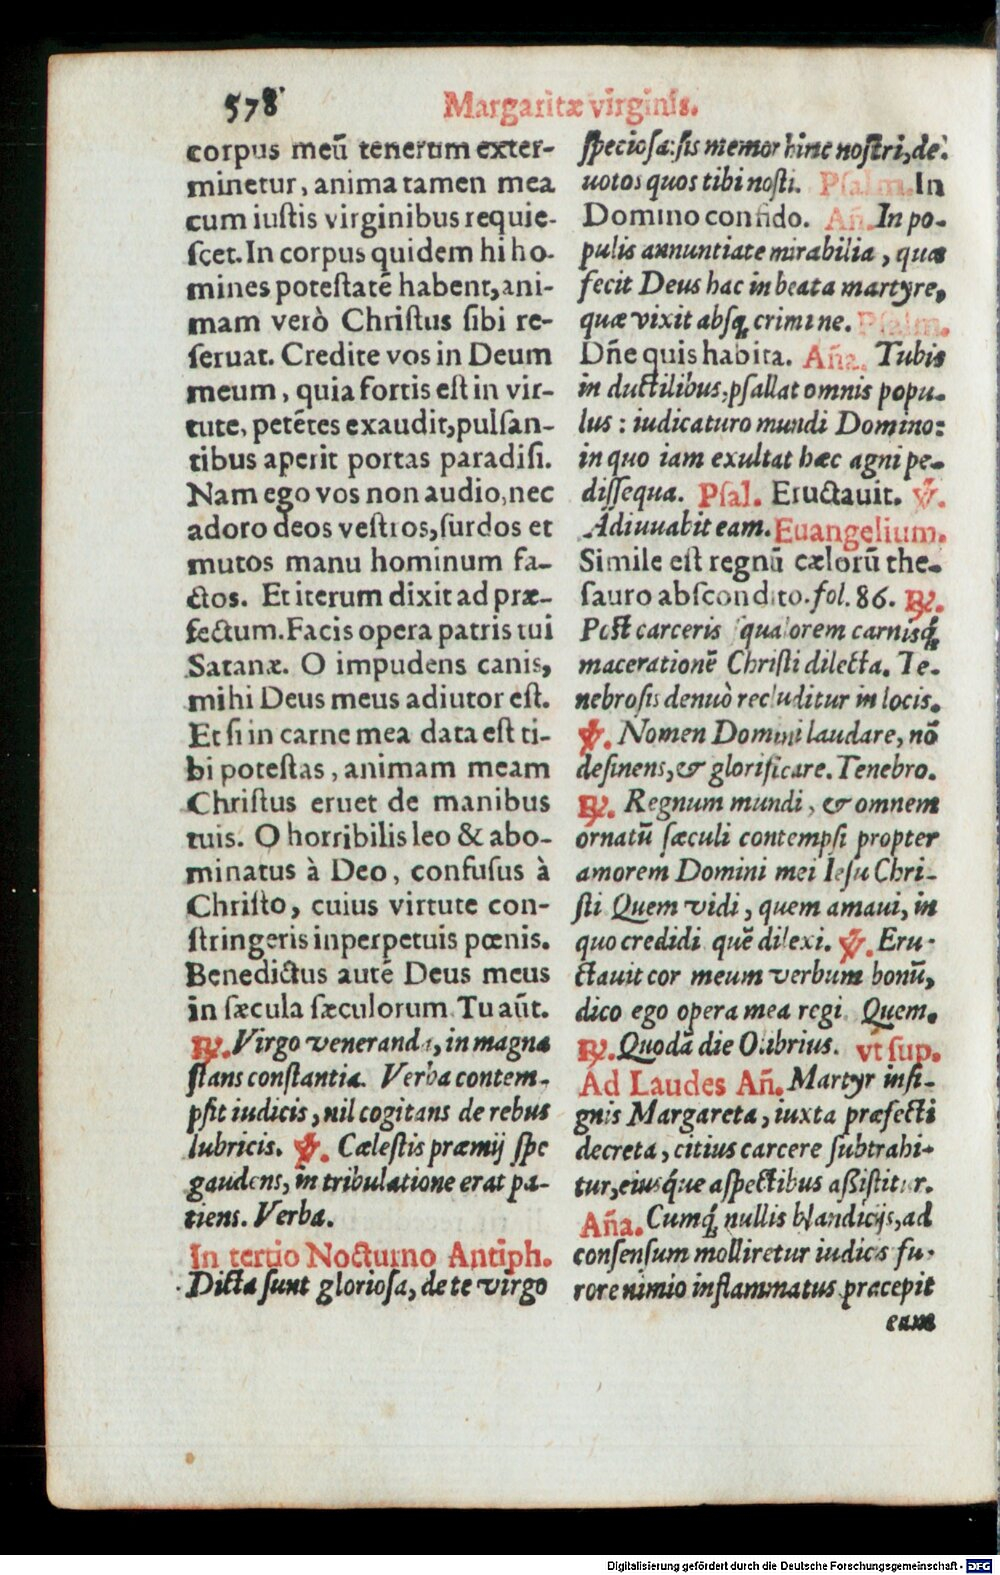 578
Margaritæ virginis.
corpus meũ tenerum exter-
minetur, anima tamen mea
cum iuſtis virginibus requie-
ſcet. In corpus quidem hi ho-
mines poteſtatẽ habent, ani-
mam verò Chriſtus ſibi re-
ſeruat. Credite vos in Deum
meum, quia fortis eſt in vir-
tute, petẽtes exaudit, pulſan-
tibus aperit portas paradiſi.
Nam ego vos non audio, nec
adoro deos veſtros, ſurdos et
mutos manu hominum fa-
ctos. Et iterum dixit ad præ-
fectum. Facis opera patris tui
Satanæ. O impudens canis,
mihi Deus meus adiutor eſt.
Et ſi in carne mea data eſt ti-
bi poteſtas, animam meam
Chriſtus eruet de manibus
tuis. O horribilis leo & abo-
minatus à Deo, confuſus à
Chriſto, cuius virtute con-
ſtringeris in perpetuis pœnis.
Benedictus autẽ Deus meus
in ſæcula ſæculorum Tu aũt.
℟. Virgo veneranda, in magna
ſtans conſtantia. Verba contem-
pſit iudicis, nil cogitans de rebus
lubricis. ℣. Cæleſtis præmij ſpe
gaudens, in tribulatione erat pa-
tiens. Verba.
In tertio Nocturno Antiph.
Dicta ſunt glorioſa, de te virgo
ſpecioſa: ſis memor hinc noſtri, de-
uotos quos tibi noſti. Pſalm. In
Domino confido. Añ. In po-
pulis annuntiate mirabilia, quæ
fecit Deus hac in beata martyre,
quæ vixit abſq; crimine. Pſalm.
Dñe quis habita. Aña. Tubis
in ductilibus, pſallat omnis popu-
lus: iudicaturo mundi Domino:
in quo iam exultat hæc agni pe-
diſſequa. Pſal. Eructauit. ℣.
Adiuuabit eam. Euangelium.
Simile eſt regnũ cælorũ the-
ſauro abſcondito. fol. 86. ℟.
Poſt carceris ſqualorem carniſq́;
macerationẽ Chriſti dilecta. Te-
nebroſis denuò recluditur in locis.
℣. Nomen Domini laudare, nõ
deſinens, & glorificare. Tenebro.
℟. Regnum mundi, & omnem
ornatũ ſæculi contempſi propter
amorem Domini mei Ieſu Chri-
ſti Quem vidi, quem amaui, in
quo credidi quẽ dilexi. ℣. Eru-
ctauit cor meum verbum bonũ,
dico ego opera mea regi Quem.
℟. Quodã die Olibrius. vt ſup.
Ad Laudes Añ. Martyr inſi-
gnis Margareta, iuxta præfecti
decreta, citius carcere ſubtrahi-
tur, eiuſq́ue aſpectibus aßiſtitur.
Aña. Cumq́; nullis blandicijs, ad
conſenſum molliretur iudicis fu-
rore nimio inflammatus præcepit
eam
Digitalisierung gefördert durch die Deutsche Forschungsgemeinschaft - DFG